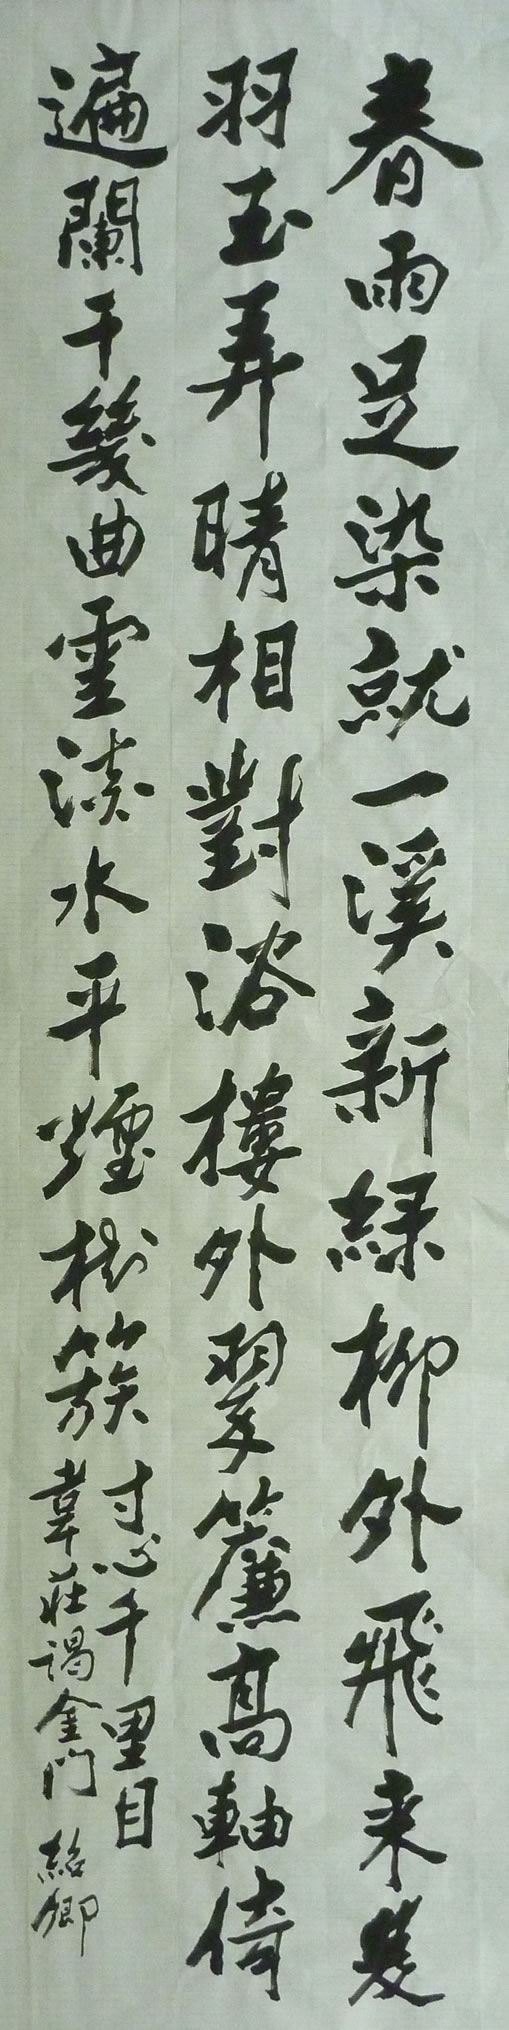 春雨足染就一溪新綠柳外飛来雙
羽玉弄晴相對浴樓外翠簾高軸倚
遍闌干幾曲雲淡水平煙樹簇
寸心千里目
韋莊謁金门 紹卿